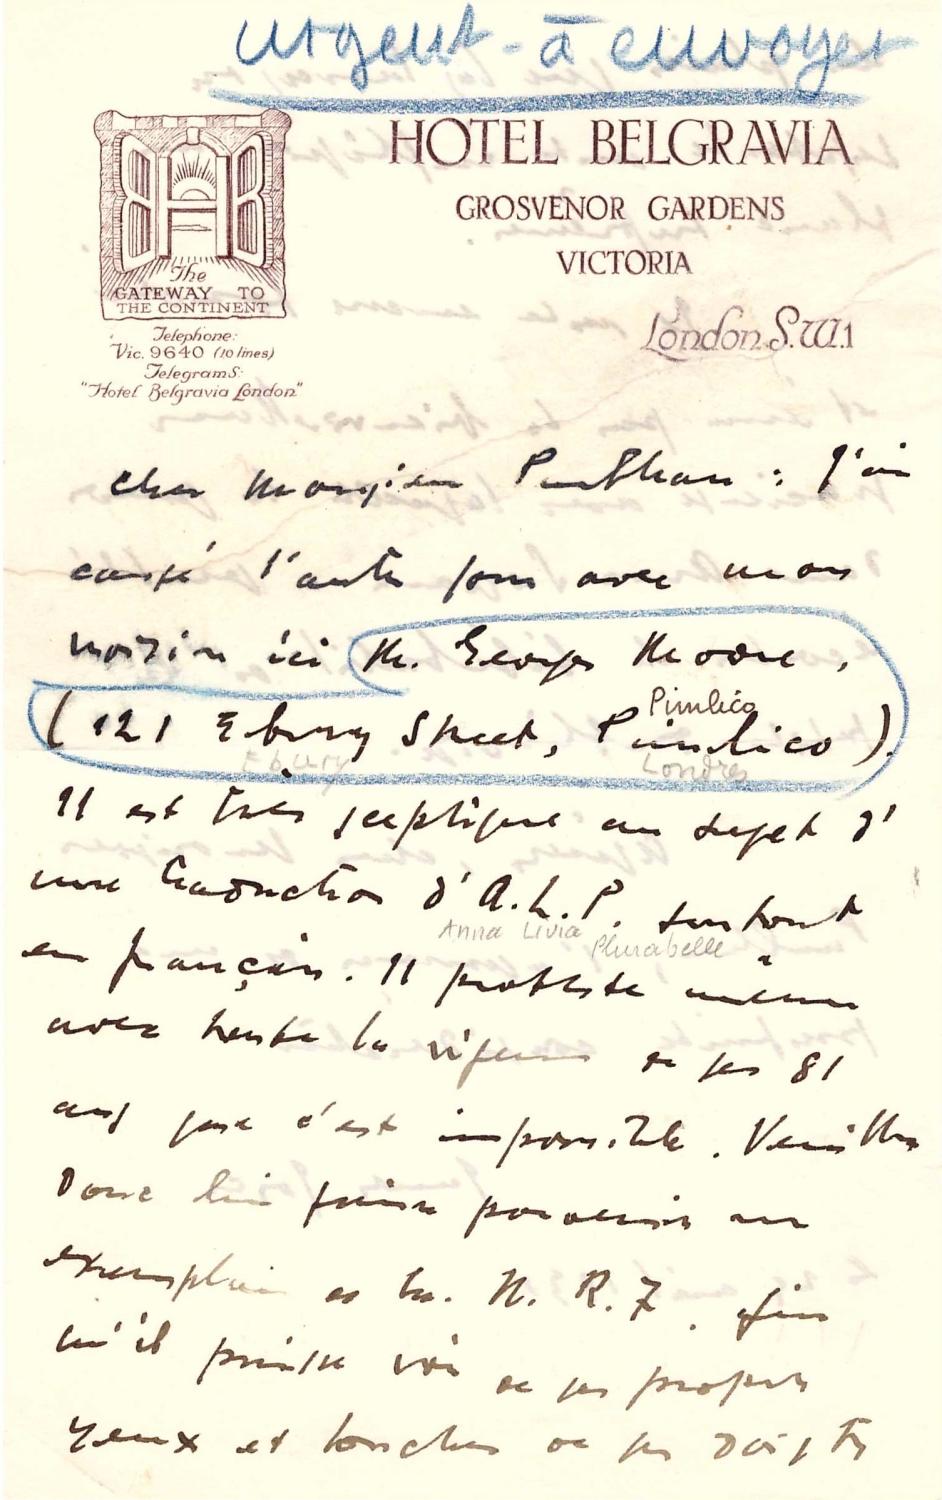 urgent - à envoyer
HOTEL BELGRAVIA
GROSVENOR GARDENS
VICTORIA
London. S.W.1
The
GATEWAY TO
THE CONTINENT
Telephone:
Vic. 9640 (10 lines)
Telegrams:
"Hotel Belgravia London"
Cher Monsieur Paulhan : J'ai
causé l'autre jour avec mon
voisin ici M. George Moore,
Pimlico
(121 Ebury Street, Pimlico).
Ebury Londres
Il est très sceptique au sujet d'
une traduction d'A.L.P. surtout
Anna Livia Plurabelle
en français. Il proteste même
avec toute la vigueur de ses 81
ans que c'est impossible. Veuillez
donc lui faire parvenir un
exemplaire de la N.R.F.
qu'il puisse voir de ses propres
yeux et toucher de ses doigts